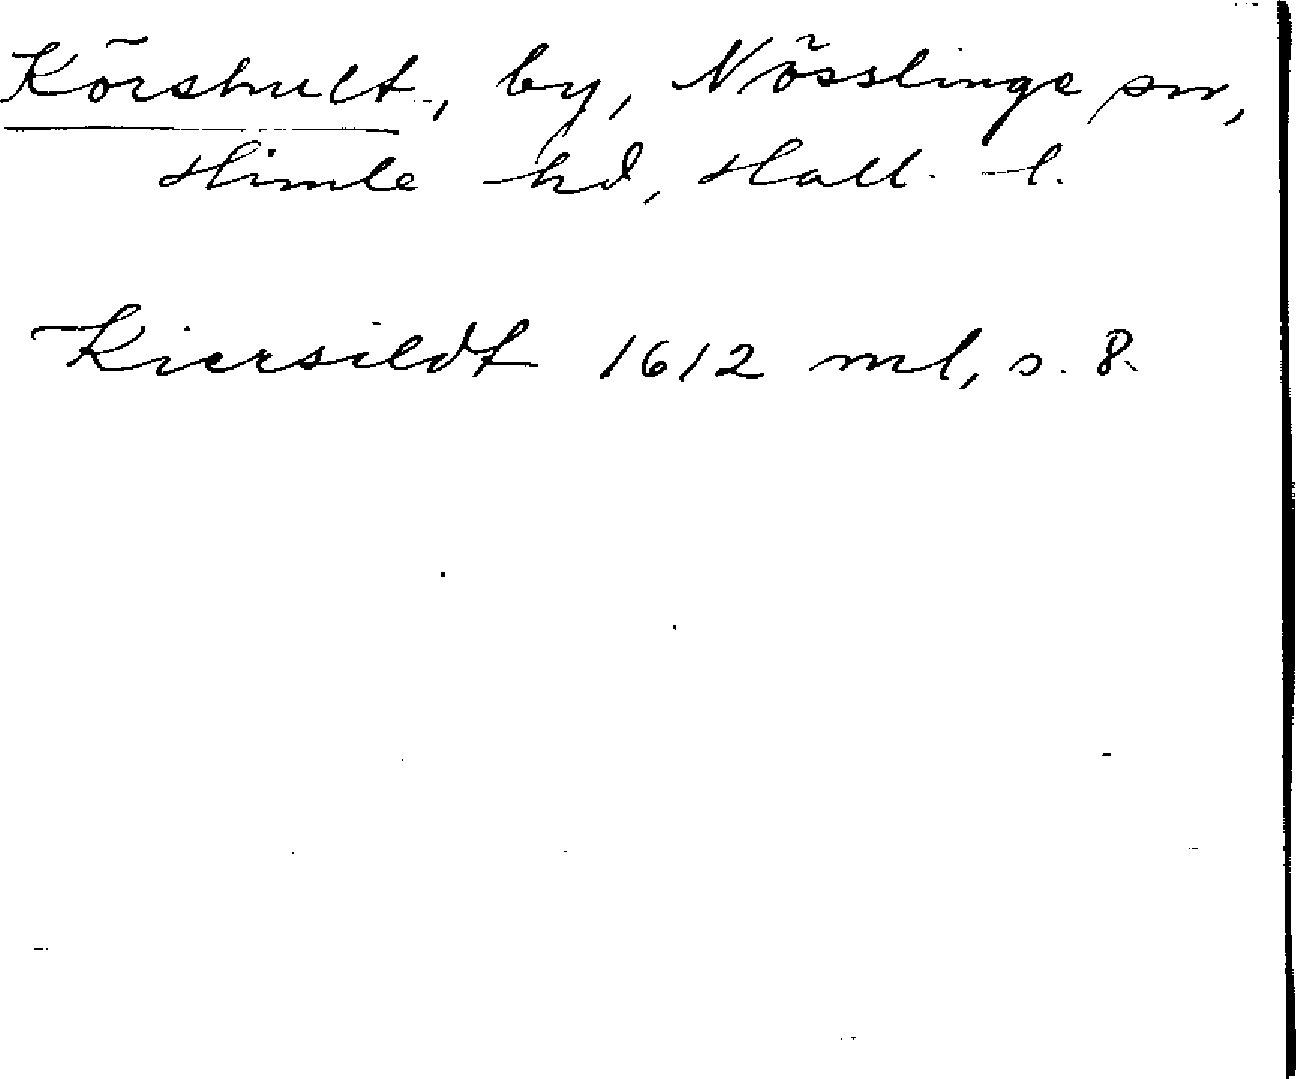 Körshult, by, Nösslinge sn,
Himle hd, Hall. l.
Kiersildt 1612 ml, s. 8.